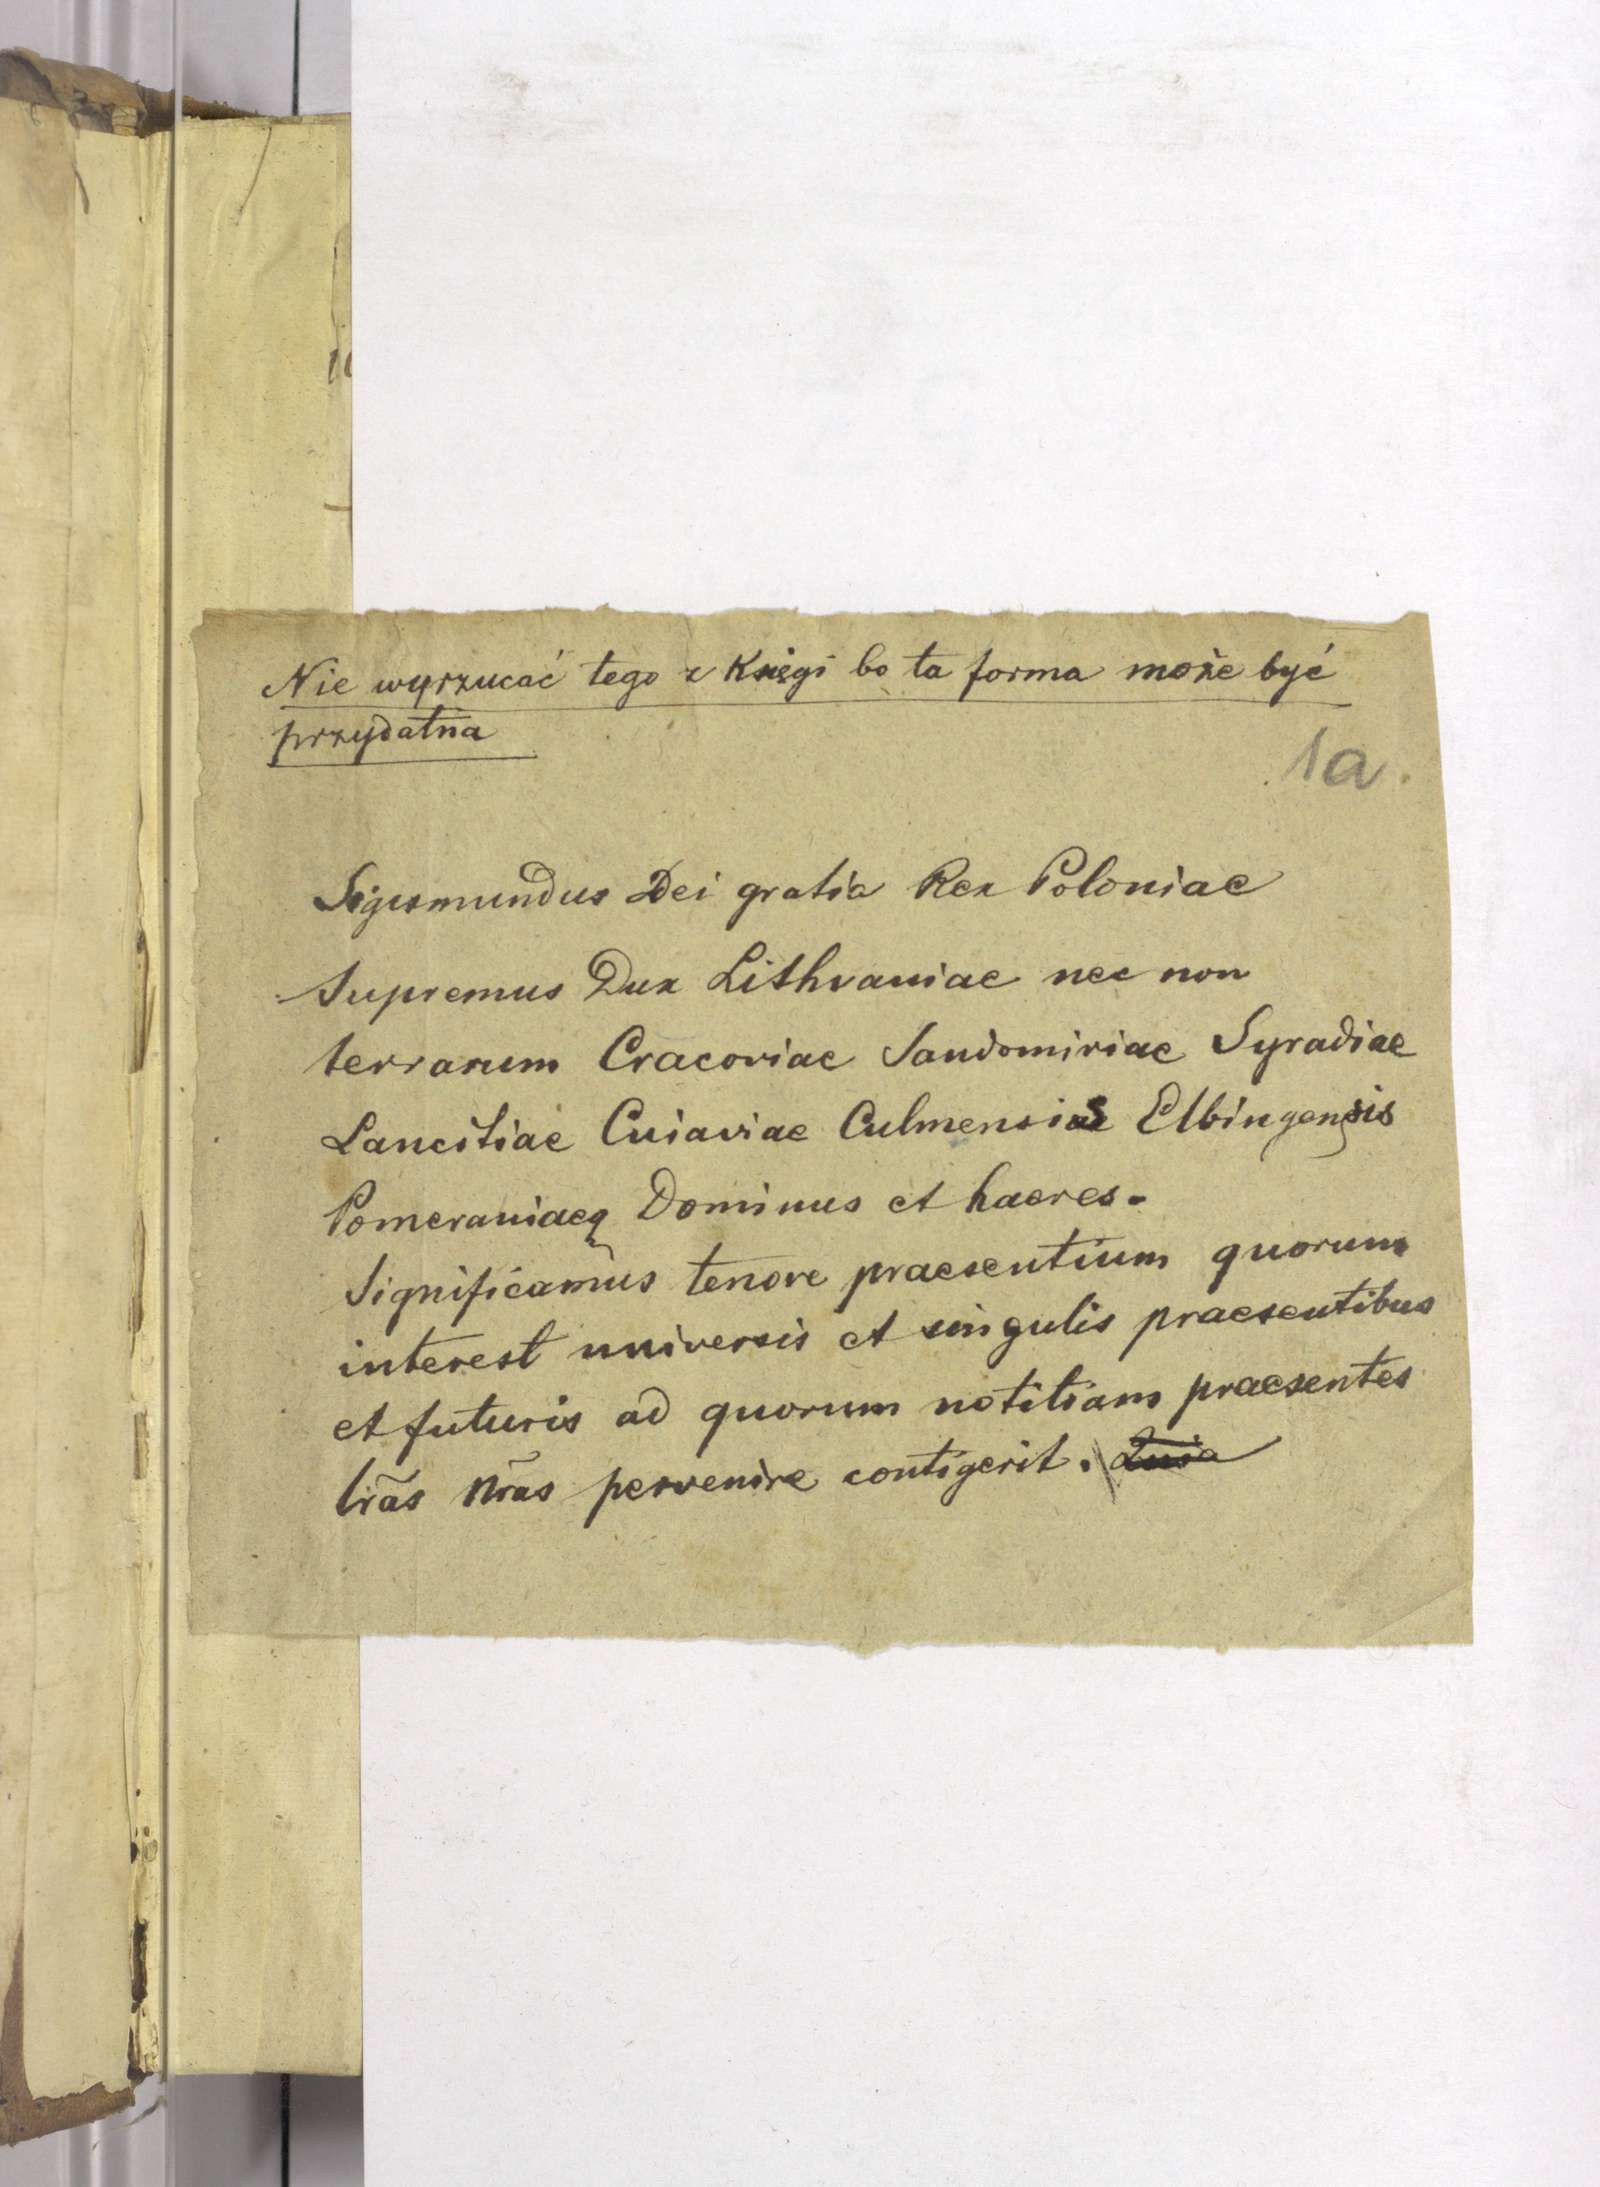 Nie wyrzucać tego z Księgi bo ta forma może być
przydatna
1a.
Sigismundus Dei gratia Rex Poloniae
Supremus Dux Lithvaniae nec non
terrarum Cracoviae Sandomiriae Syradiae
Lancitiae Cuiaviae Culmensis Elbingensis
Pomeraniaeq Dominus et haeres.
Significamus tenore praesentium quorum
interest universis et singulis praesentibus
et futuris ad quorum notitiam praesentes
lrãs nrãs pervenire contigerit.